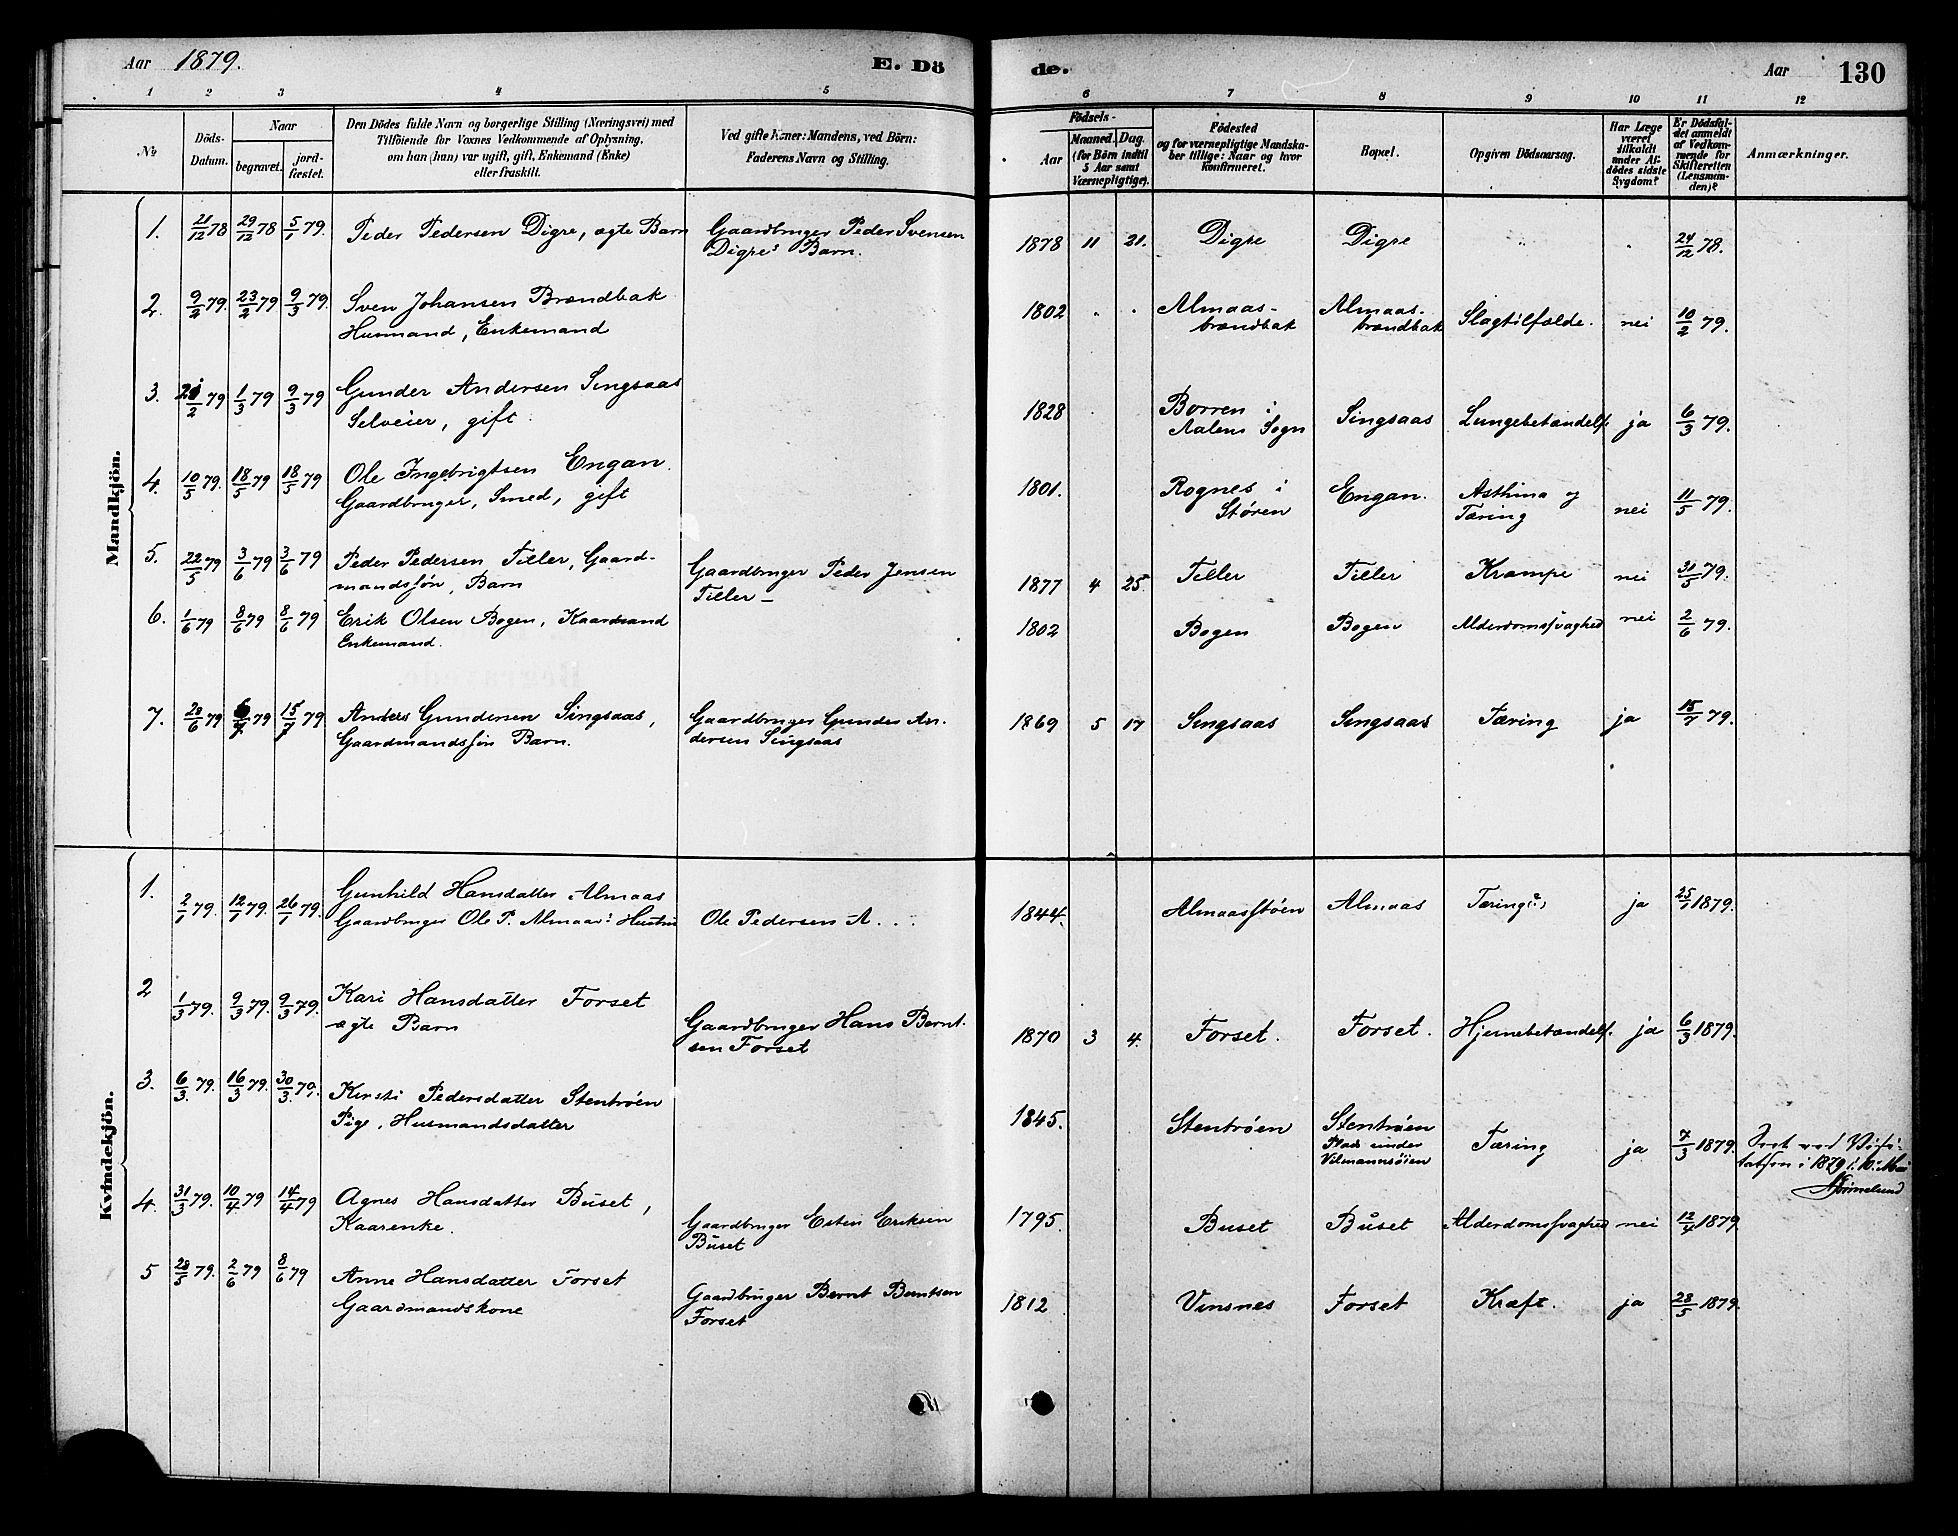 Aar 1879. E. Dö de. Aar 130
1 2 3 4 5 6 7 8 9 10 11 12
No
Döds-
Datum.
Naar
begravet.
jord-
fæstet.
Den Dödes fulde Navn og borgerlige Stilling (Næringsvei) med
Tilföiende for Voxnes Vedkommende af Oplysning,
om han (hun) var ugift, gift, Enkemand (Enke)
eller fraskilt.
Ved gifte Koner: Mandens, ved Börn:
Faderens Navn og Stilling.
Födsels-
Aar
Maaned. Dag.
(for Börn indtil
5 Aar samt
Værnepligtige).
Födested
og for værnepligtige Mandska-
ber tillige: Naar og hvor
konfirmeret.
Bopæl.
Opgiven Dödsaarsag.
Har Læge
været
tilkaldt
under Af-
dödes sidste
Sygdom?
Er Dödsfal-
det anmeldt
af Vedkom-
mende for
Skifteretten
(Lensman-
den)?
Anmærkninger.
Mandkjön.
1. 21/12 78 29/12 78 5/1 79. Peder Pedersen Digre, ægte Barn Gaardbruger Peder Svensen
Digres Barn. 1878 11 21. Digre Digre 24/12 78.
2. 9/2 79. 23/2 79 9/3 79. Sven Johansen Brændbak
Husmand, Enkemand 1802 Almaas-
brændbak Almaas-
brændbak Slagtilfælde. nei 10/2 79.
3. 2/2 79 1/3 79 9/3 79 Gunder Andersen Singsaas
Selveier, gift. 1828 Borren i
Aalens Sogn Singsaas Lungebetændelse ja 6/3 79.
4. 10/5 79. 18/5 79 18/5 79 Ole Ingebrigtsen Engan
Gaardbruger, Smed, gift 1801. Rognes i
Støren Engan. Asthma og
Tæring nei 11/5 79.
5. 22/5 79 3/6 79 3/6 79 Peder Pedersen Tiller, Gaard-
mandssøn, Barn Gaardbruger Peder Jensen
Tiller 1877 4 25. Tiller Tiller Krampe nei 31/5 79.
6. 1/6 79 8/6 79 8/6 79 Erik Olsen Bogen, Kaardmand
Enkemand. 1802 Bogen Bogen Alderdomssvaghed nei 2/6 79.
7. 28/6 79 6/7 79 15/7 79 Anders Gundersen Singsaas,
Gaardmandssøn Barn. Gaardbruger Gunder An-
dersen Singsaas 1869 5 17 Singsaas Singsaas Tæring ja 15/7 79.
Kvindekjön.
1. 2/1 79. 12/1 79. 26/1 79. Gunhild Hansdatter Almaas
Gaardbruger Ole P. Almaas' Hustru Ole Pedersen A... 1844. Almaasstøen Almaas Tæring(?) ja 25/1 1879.
2 1/3 79. 9/3 79. 9/3 79. Kari Hansdatter Forset
ægte Barn Gaardbruger Hans Bernt-
sen Forset 1870 3 4. Forset. Forset. Hjernebetændelse. ja 6/3 1879.
3. 6/3 79. 16/3 79. 30/3 79. Kirsti Pedersdatter Stentrøen
Pige, Husmandsdatter 1845. Stentrøen Stentrøen
Plads under
Vilmannsøien Tæring ja 7/3 1879. Seet ved Visi-
tatsen i 1879
4. 31/3 79. 10/4 79 14/4 79 Agnes Hansdatter Buset,
Kaarenke. Gaardbruger Esten Eriksen
Buset 1795. Buset Buset Alderdomssvaghed nei 12/4 1879.
5 28/5 79. 2/6 79 8/6 79 Anne Hansdatter Forset
Gaardmandskone Gaardbruger Bernt Berntsen
Forset 1812 Vinsnes Forset Kræft. ja 28/5 1879.